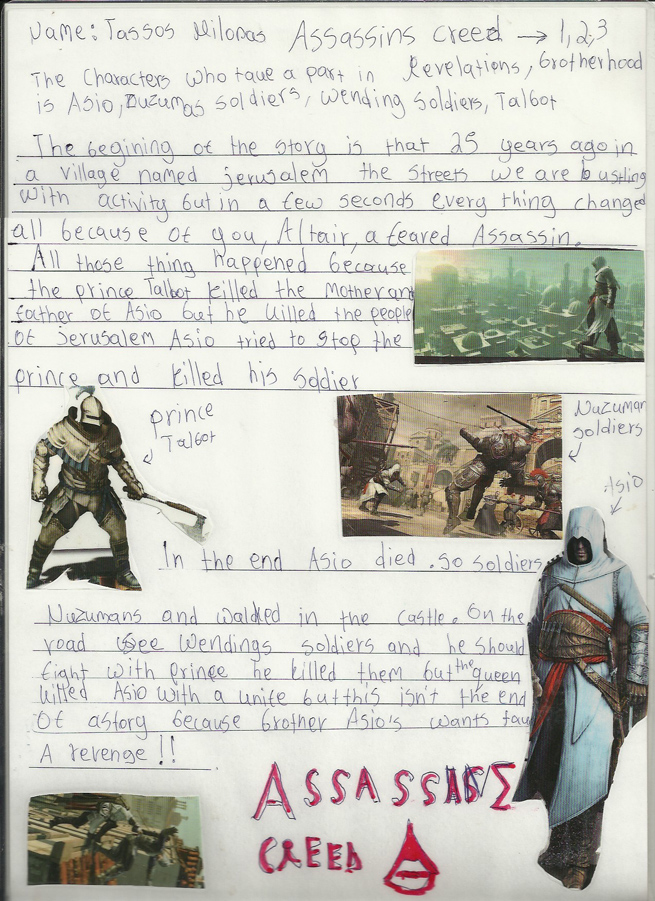 Name: Tassos Milonas Assassins creed → 1, 2, 3
The Characters who take a part in Revelations, Brotherhood
is Asio, Nuzumas soldiers, Wending Soldiers, Talbot
The begining of the story is that 25 years ago in
a village named jerusalem the streets we are bustling
with activity but in a few seconds every thing changed
all because of you, Altair, a feared Assassin.
All those thing happened because
the prince Talbot killed the Mother and
father of Asio but he killed the people
of jerusalem Asio tried to stop the
prince and killed his soldier
prince
Talbot
Nuzuman
soldiers
Asio
In the end Asio died. so soldiers
Nuzumans and walked in the castle. On the
road see Wendings soldiers and he should
fight with prince he killed them but the queen
killed Asio with a unife but this isn't the end
of a story because brother Asio's wants
A revenge!!
ASSASSINS
CREED